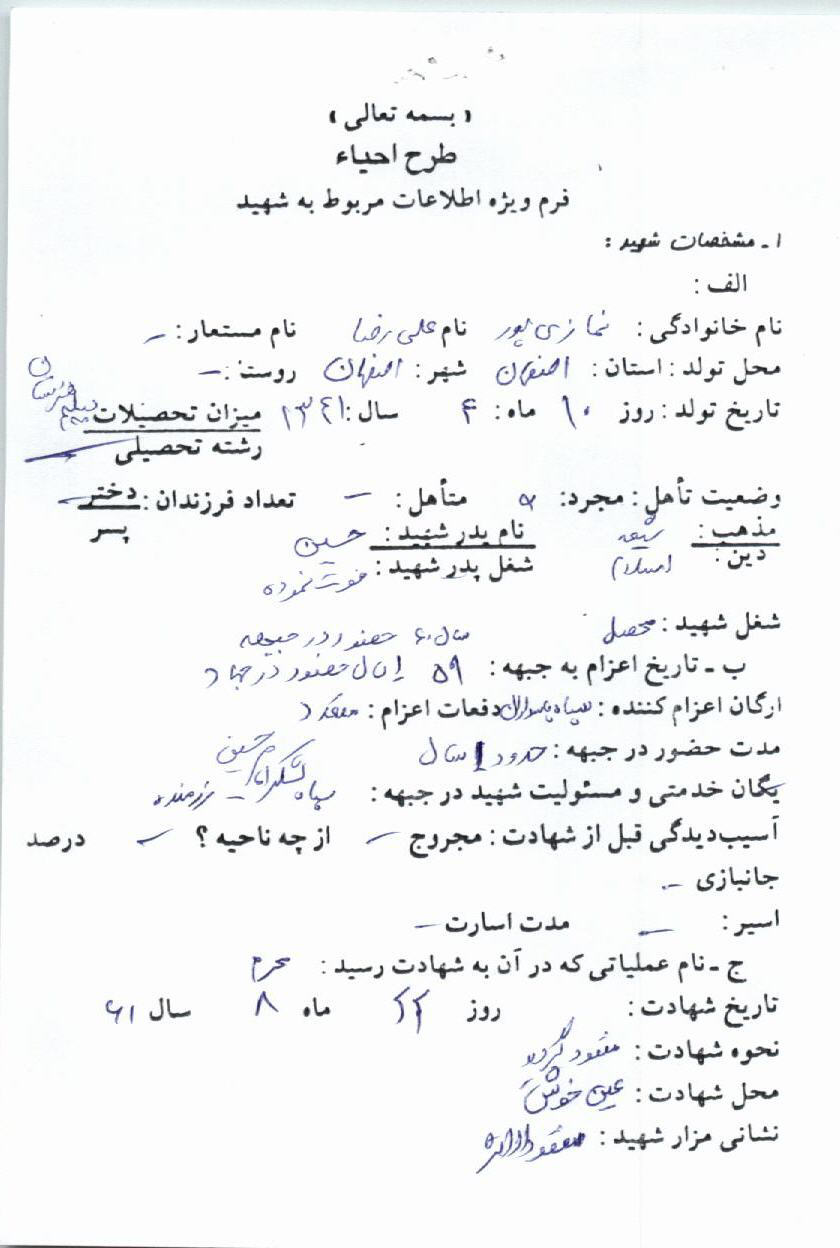 ( بسمه تعالی )
طرح احیاء
فرم ویژه اطلاعات مربوط به شهید
۱ـ مشخصات شهید :
الف :
نام خانوادگی : نمازی پور نام علی رضا نام مستعار : –
محل تولد : استان : اصفهان شهر : اصفهان روستا : –
تاریخ تولد : روز ۱۰ ماه : ۴ سال : ۱۳۴۱ میزان تحصیلات دیپلم هنرستان
رشته تحصیلی –
وضعیت تأهل : مجرد : متأهل : – تعداد فرزندان : دختر –
پسر
مذهب : شیعه نام پدر شهید : حسین
دین : اسلام شغل پدر شهید : فوت نموده
شغل شهید : محصل
سال ۶۰ حضور در جبهه
ب ـ تاریخ اعزام به جبهه : ۵۹ حضور در جهاد
ارگان اعزام کننده : سپاه پاسداران دفعات اعزام : متعدد
مدت حضور در جبهه : حدود ۱ سال
یگان خدمتی و مسئولیت شهید در جبهه : سپاه لشکر امام حسین – رزمنده
آسیب‌دیدگی قبل از شهادت : مجروح – از چه ناحیه ؟ – درصد
جانبازی –
اسیر : – مدت اسارت –
ج ـ نام عملیاتی که در آن به شهادت رسید : محرم
تاریخ شهادت : روز ۲۲ ماه ۸ سال ۶۱
نحوه شهادت : مفقود گردید
محل شهادت : عین خوش
نشانی مزار شهید : مفقودالاثر